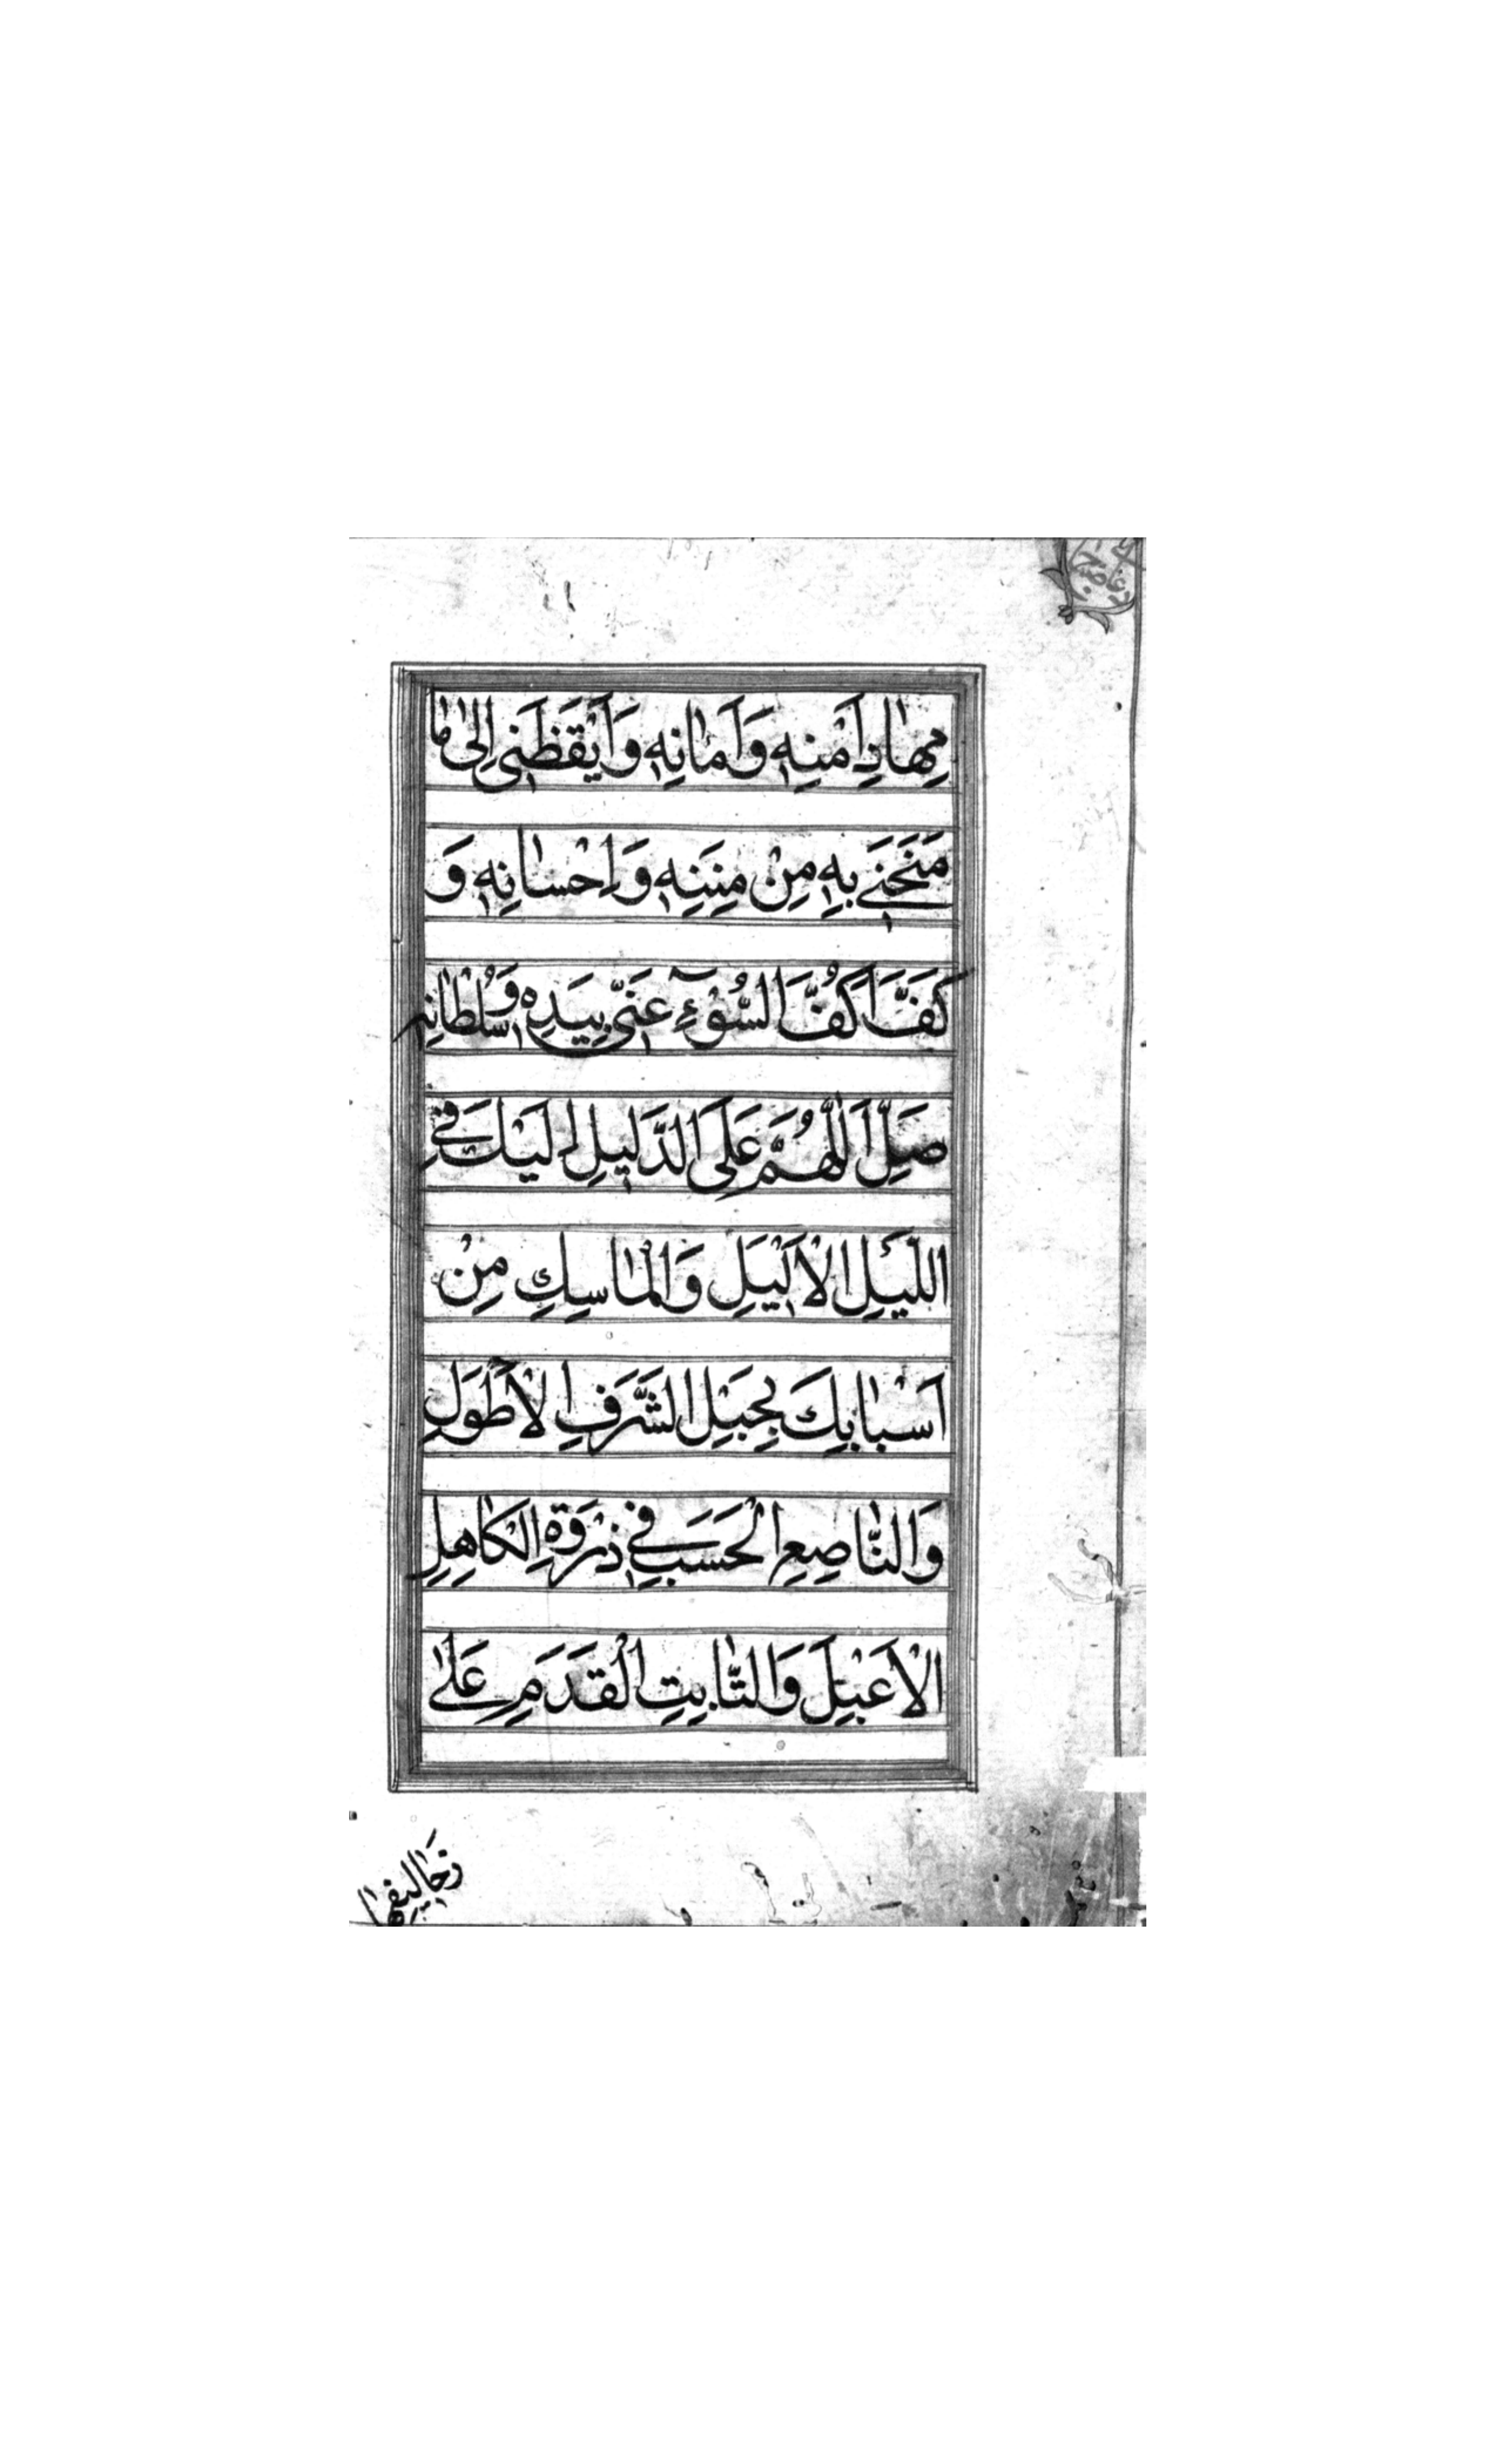 مِهٰادِ اَمْنِهٖ وَاَمٰانِهٖ وَاَيْقَظَنٖى اِلىٰ مٰا
مَنَحَنٖے بِهٖ مِنْ مِنَنِهٖ وَاِحْسٰانِهٖ وَ
كَفَّ اَكُفَّ السُّوۤءِ عَنّٖى بِيَدِهٖ وَسُلْطٰانِهٖ
صَلِّ اَللّٰهُمَّ عَلَى الدَّلٖيلِ اِلَيْكَ فِے
اللَّيْلِ الْاَلْيَلِ وَالْمٰاسِكِ مِنْ
اَسْبٰابِكَ بِحَبْلِ الشَّرَفِ الْاَطْوَلِ
وَالنّٰاصِعِ الْحَسَبِ فٖے ذِرْوَةِ الْكٰاهِلِ
الْاَعْبَلِ وَالثّٰابِتِ الْقَدَمِ عَلىٰ